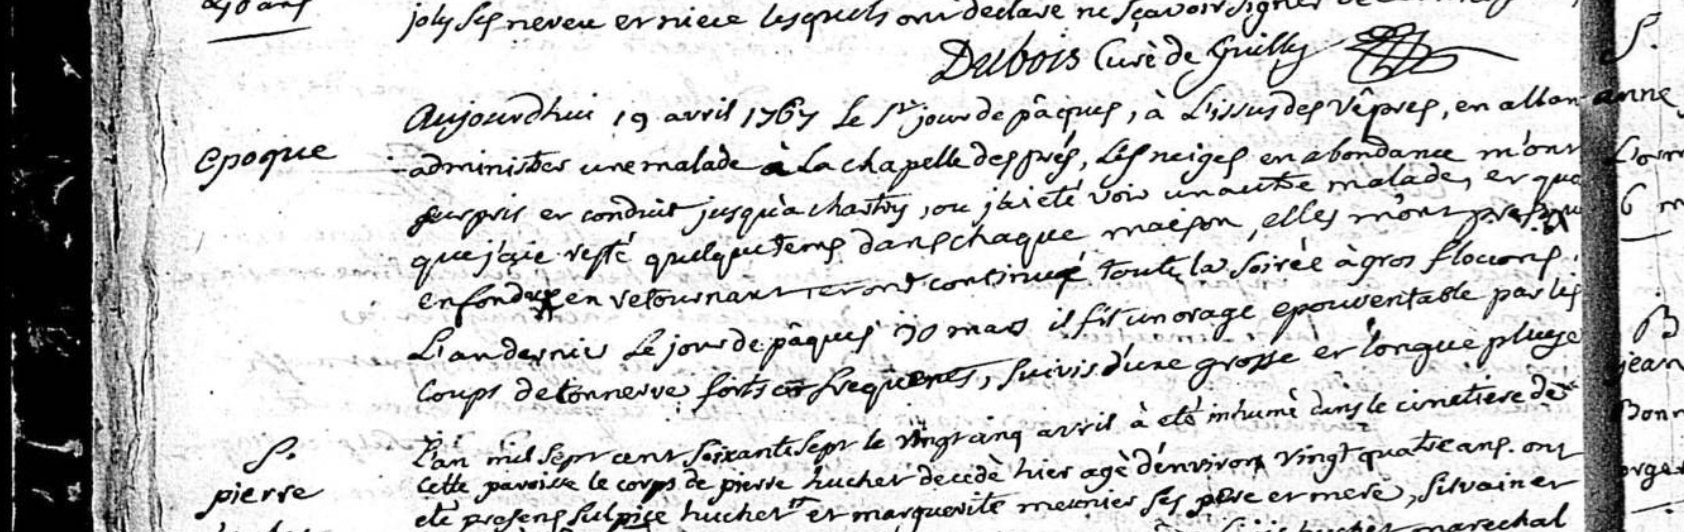 joly ses neveu et niece lesquels ont declaré ne sçavoir signer de
Dubois Curé de Guilly
Epoque
Aujourdhui 19 avril 1767 Le St jour de pâques, à L'issus des Vêpres, en allan
administer une malade à La chapelle des prés, Les neiges en abondance m'ont
surpris et conduit jusqu'a chartry, ou j'ai été voir un autre malade, et quo
que j'aie resté quelque tems dans chaque maison, elles m'ont presqu
enfondu en retournant et ont continué toute la soirée à gros flocons,
L'an dernier Le jour de pâques 30 mars il fit un orage epouventable par les
Coups de tonnerre forts et frequents, suivis d'une grosse et longue pluye
S.
pierre
L'an mil sept cent soixante sept le vingt cinq avril à eté inhumé dans le cimetiere de
cette paroisse le corps de pierre huchet decedé hier agé d'environ vingt quatre ans. ont
eté presens sulpice huchet et marguerite meunier ses pere et mere, silvain et
huchet marechal
S.
anne
6 m
B
jean
Bonn